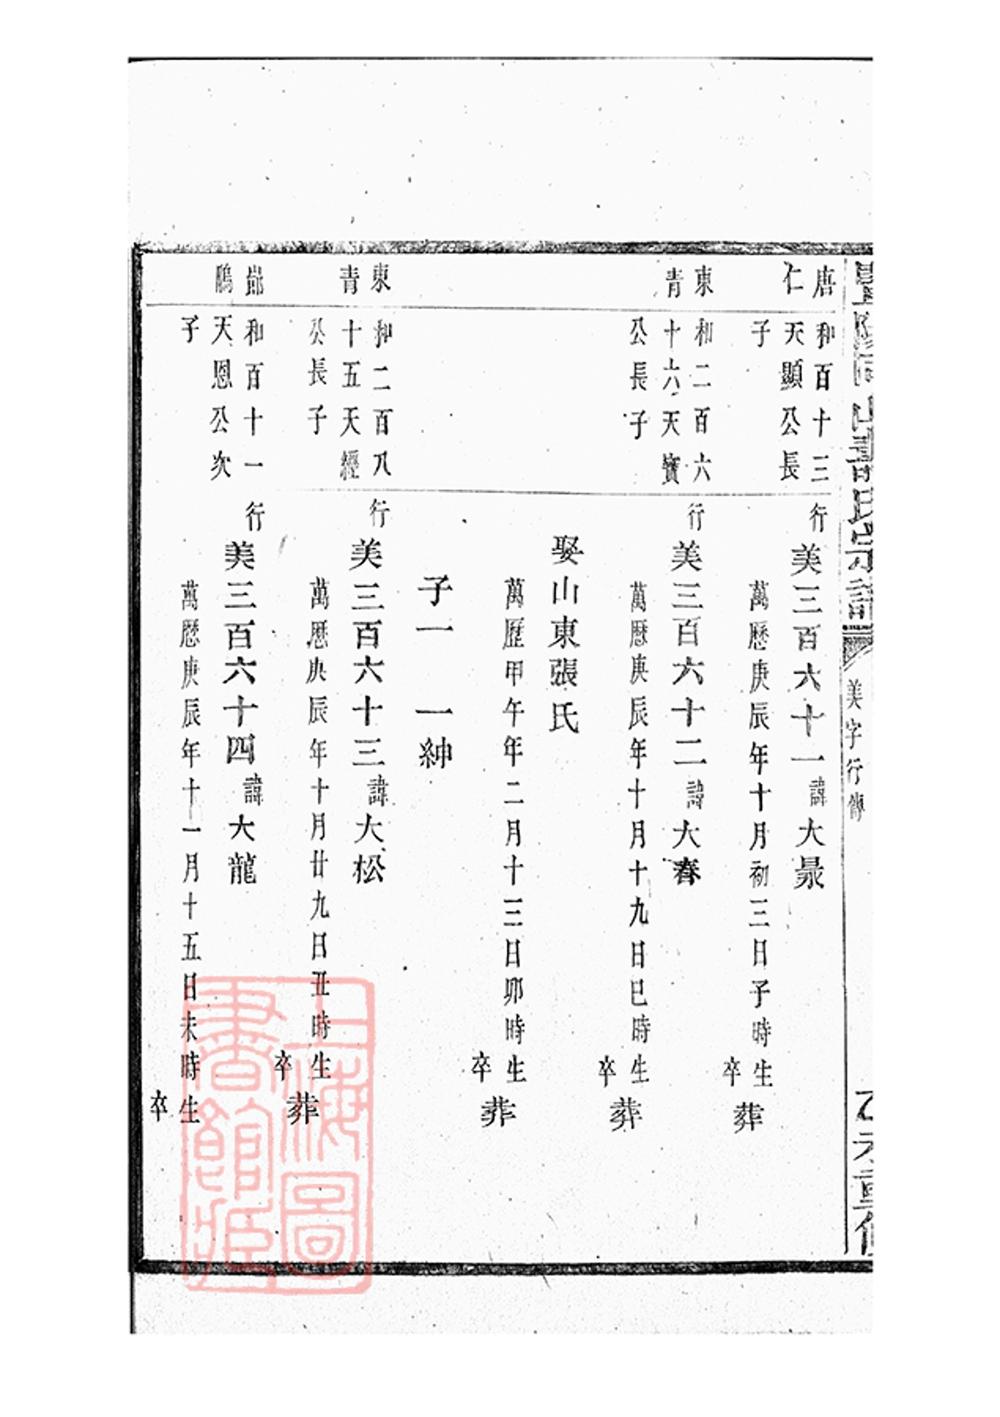 暨陽同山壽氏宗譜
美字行傳
乙未重修
唐
仁
和百十三
天顯公長
子
行美三百六十一諱大
萬曆庚辰年十月初三日子時生
卒
葬
東
青
和二百六
十六天寶
公長子
行美三百六十二諱大春
萬曆庚辰年十月十九日巳時生
卒
葬
娶山東張氏
萬曆甲午年二月十三日卯時生
卒
葬
子一 一紳
東
青
和二百八
十五天經
公長子
行美三百六十三諱大松
萬曆庚辰年十月廿九日丑時生
卒
葬
和百十一
天恩公次
子
行美三百六十四諱大龍
萬曆庚辰年十一月十五日未時生
卒
上海圖
書館藏